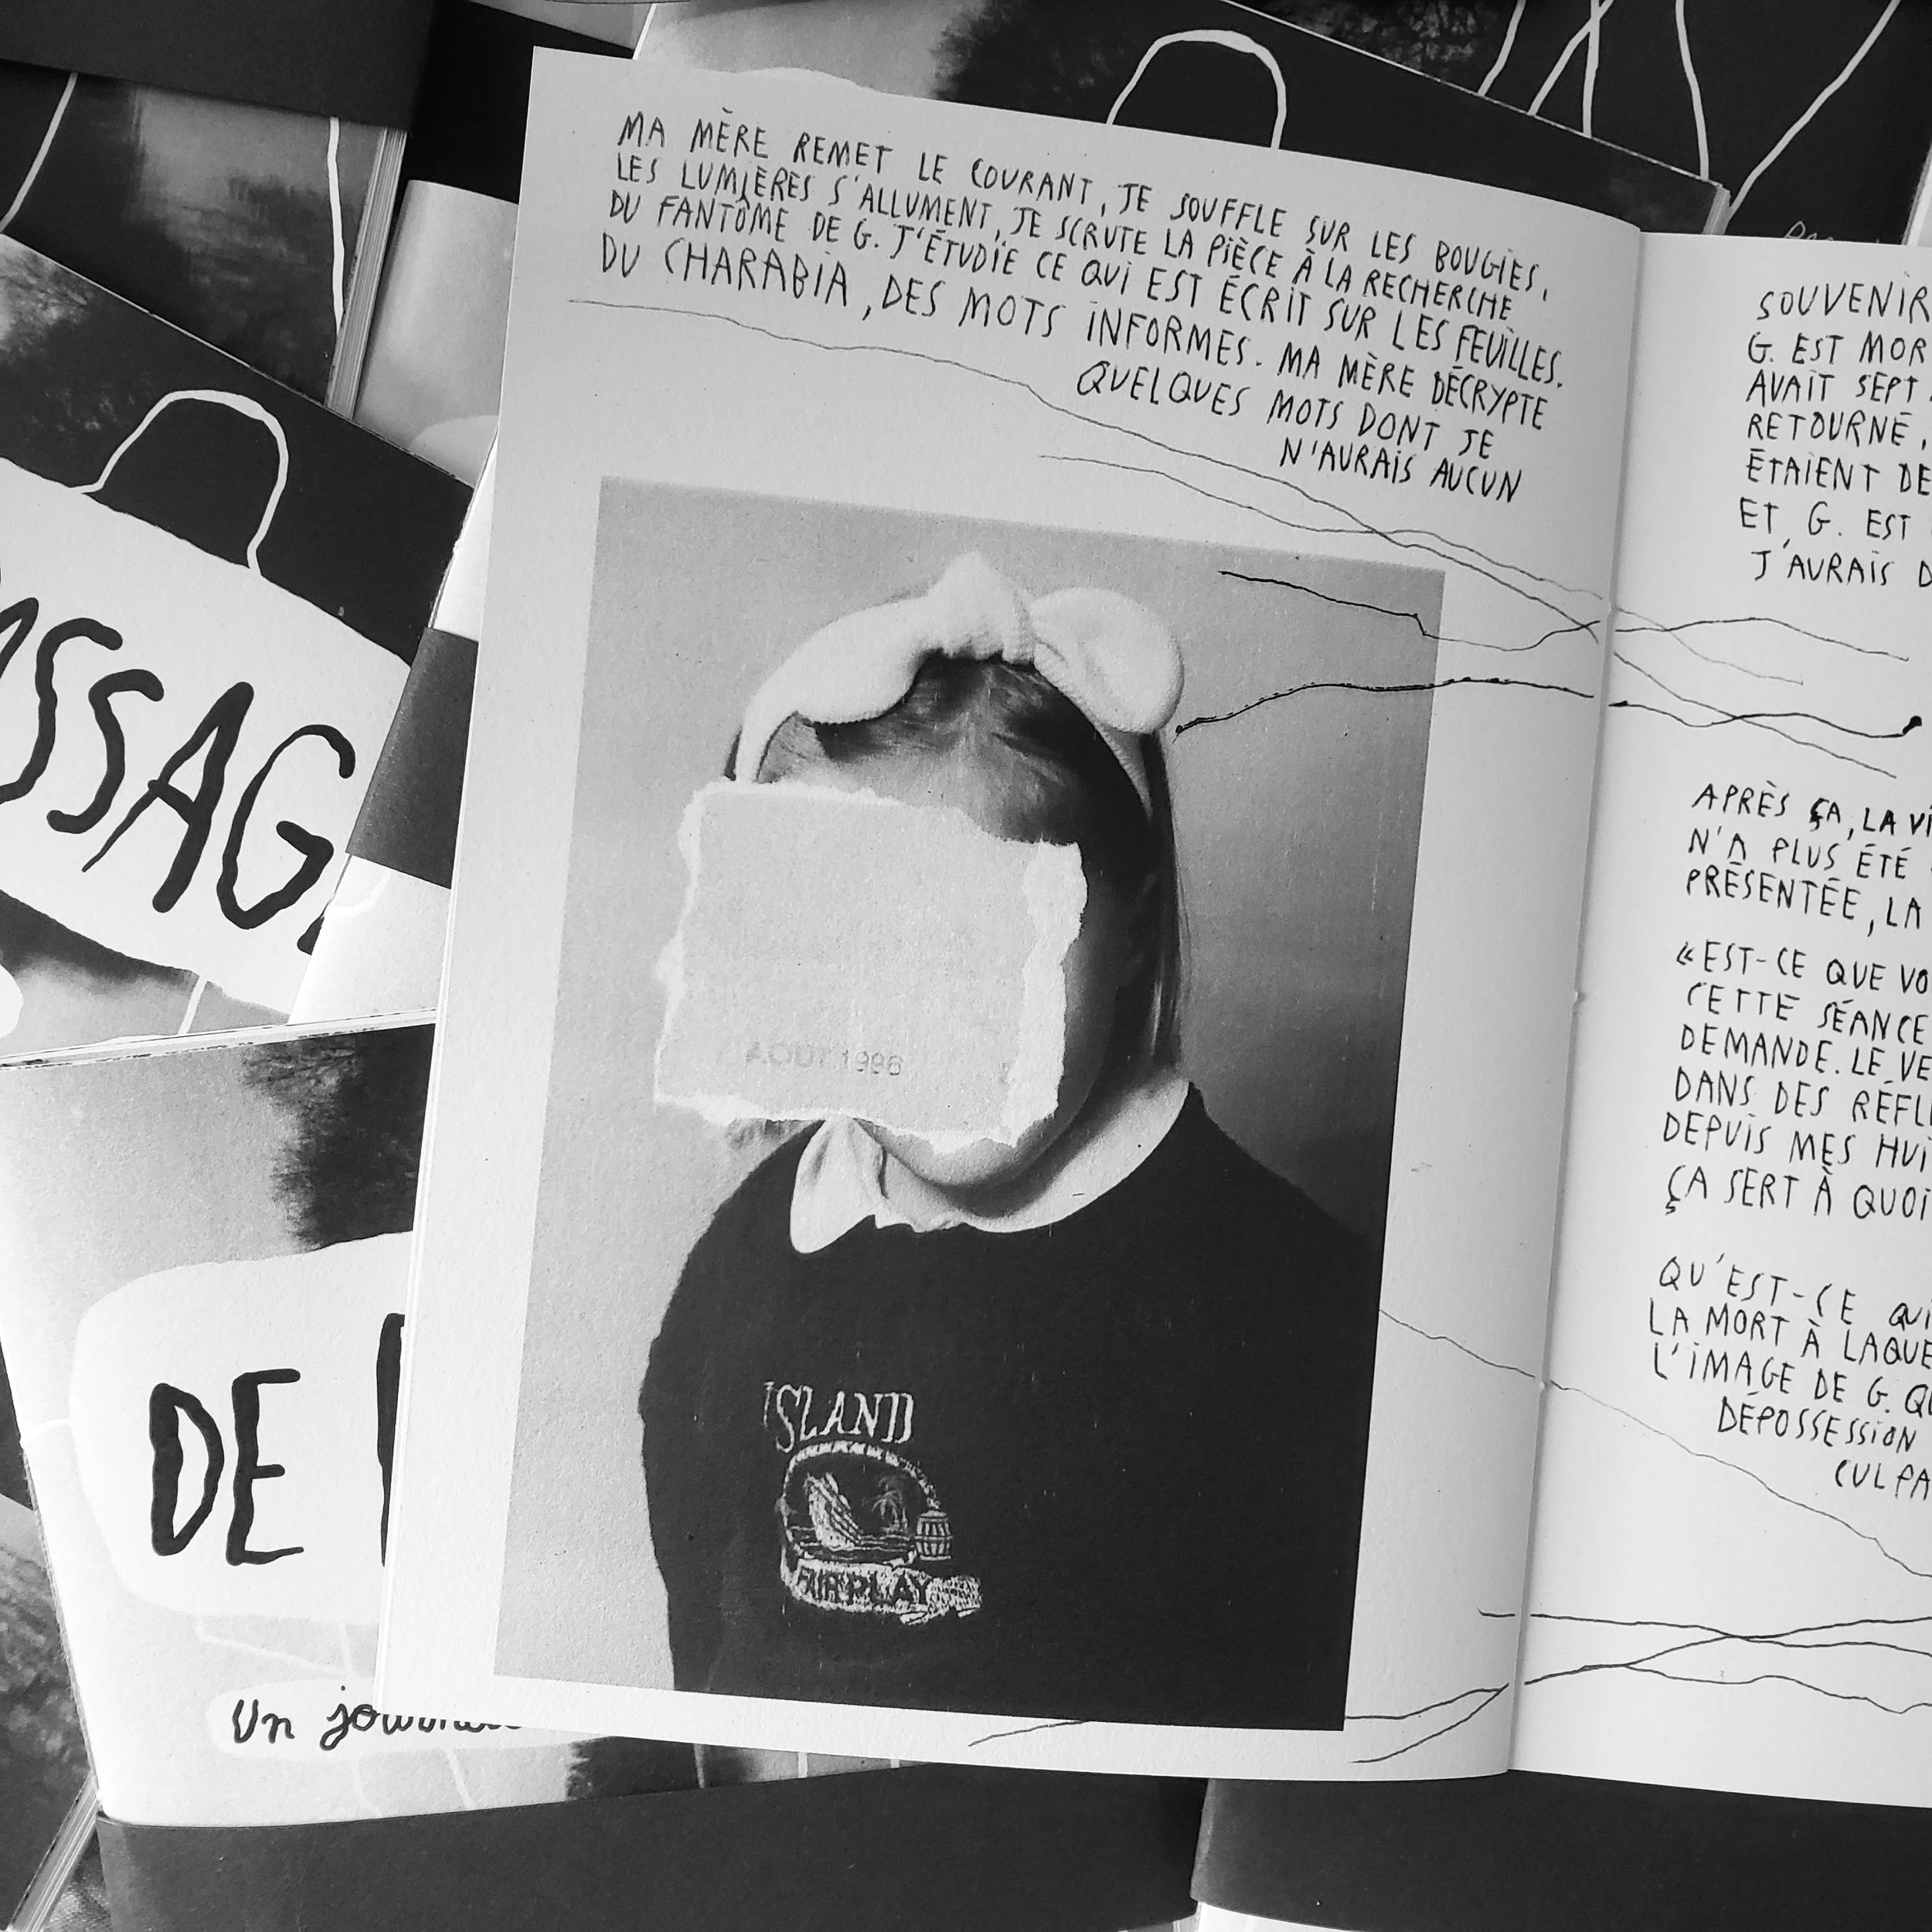 MA MÈRE REMET LE COURANT, JE SOUFFLE SUR LES BOUGIES,
LES LUMIÈRES S'ALLUMENT, JE SCRUTE LA PIÈCE À LA RECHERCHE
DU FANTÔME DE G. J'ÉTUDIE CE QUI EST ÉCRIT SUR LES FEUILLES.
DU CHARABIA, DES MOTS INFORMES. MA MÈRE DÉCRYPTE
QUELQUES MOTS DONT JE
N'AURAIS AUCUN
AOUT 1996
ISLAND
FAIR PLAY
SOUVENIR
G. EST MOR
AVAIT SEPT
RETOURNÉ,
ÉTAIENT DE
ET G. EST
J'AURAIS D
APRÈS ÇA, LA VI
N'A PLUS ÉTÉ
PRÉSENTÉE, LA
«EST-CE QUE VO
CETTE SÉANCE
DEMANDE. LE VE
DANS DES RÉFL
DEPUIS MES HUI
ÇA SERT À QUOI
QU'EST-CE QUI
LA MORT À LAQUE
L'IMAGE DE G. QU
DÉPOSSESSION
CULPA
SSAG
DE
Un journal